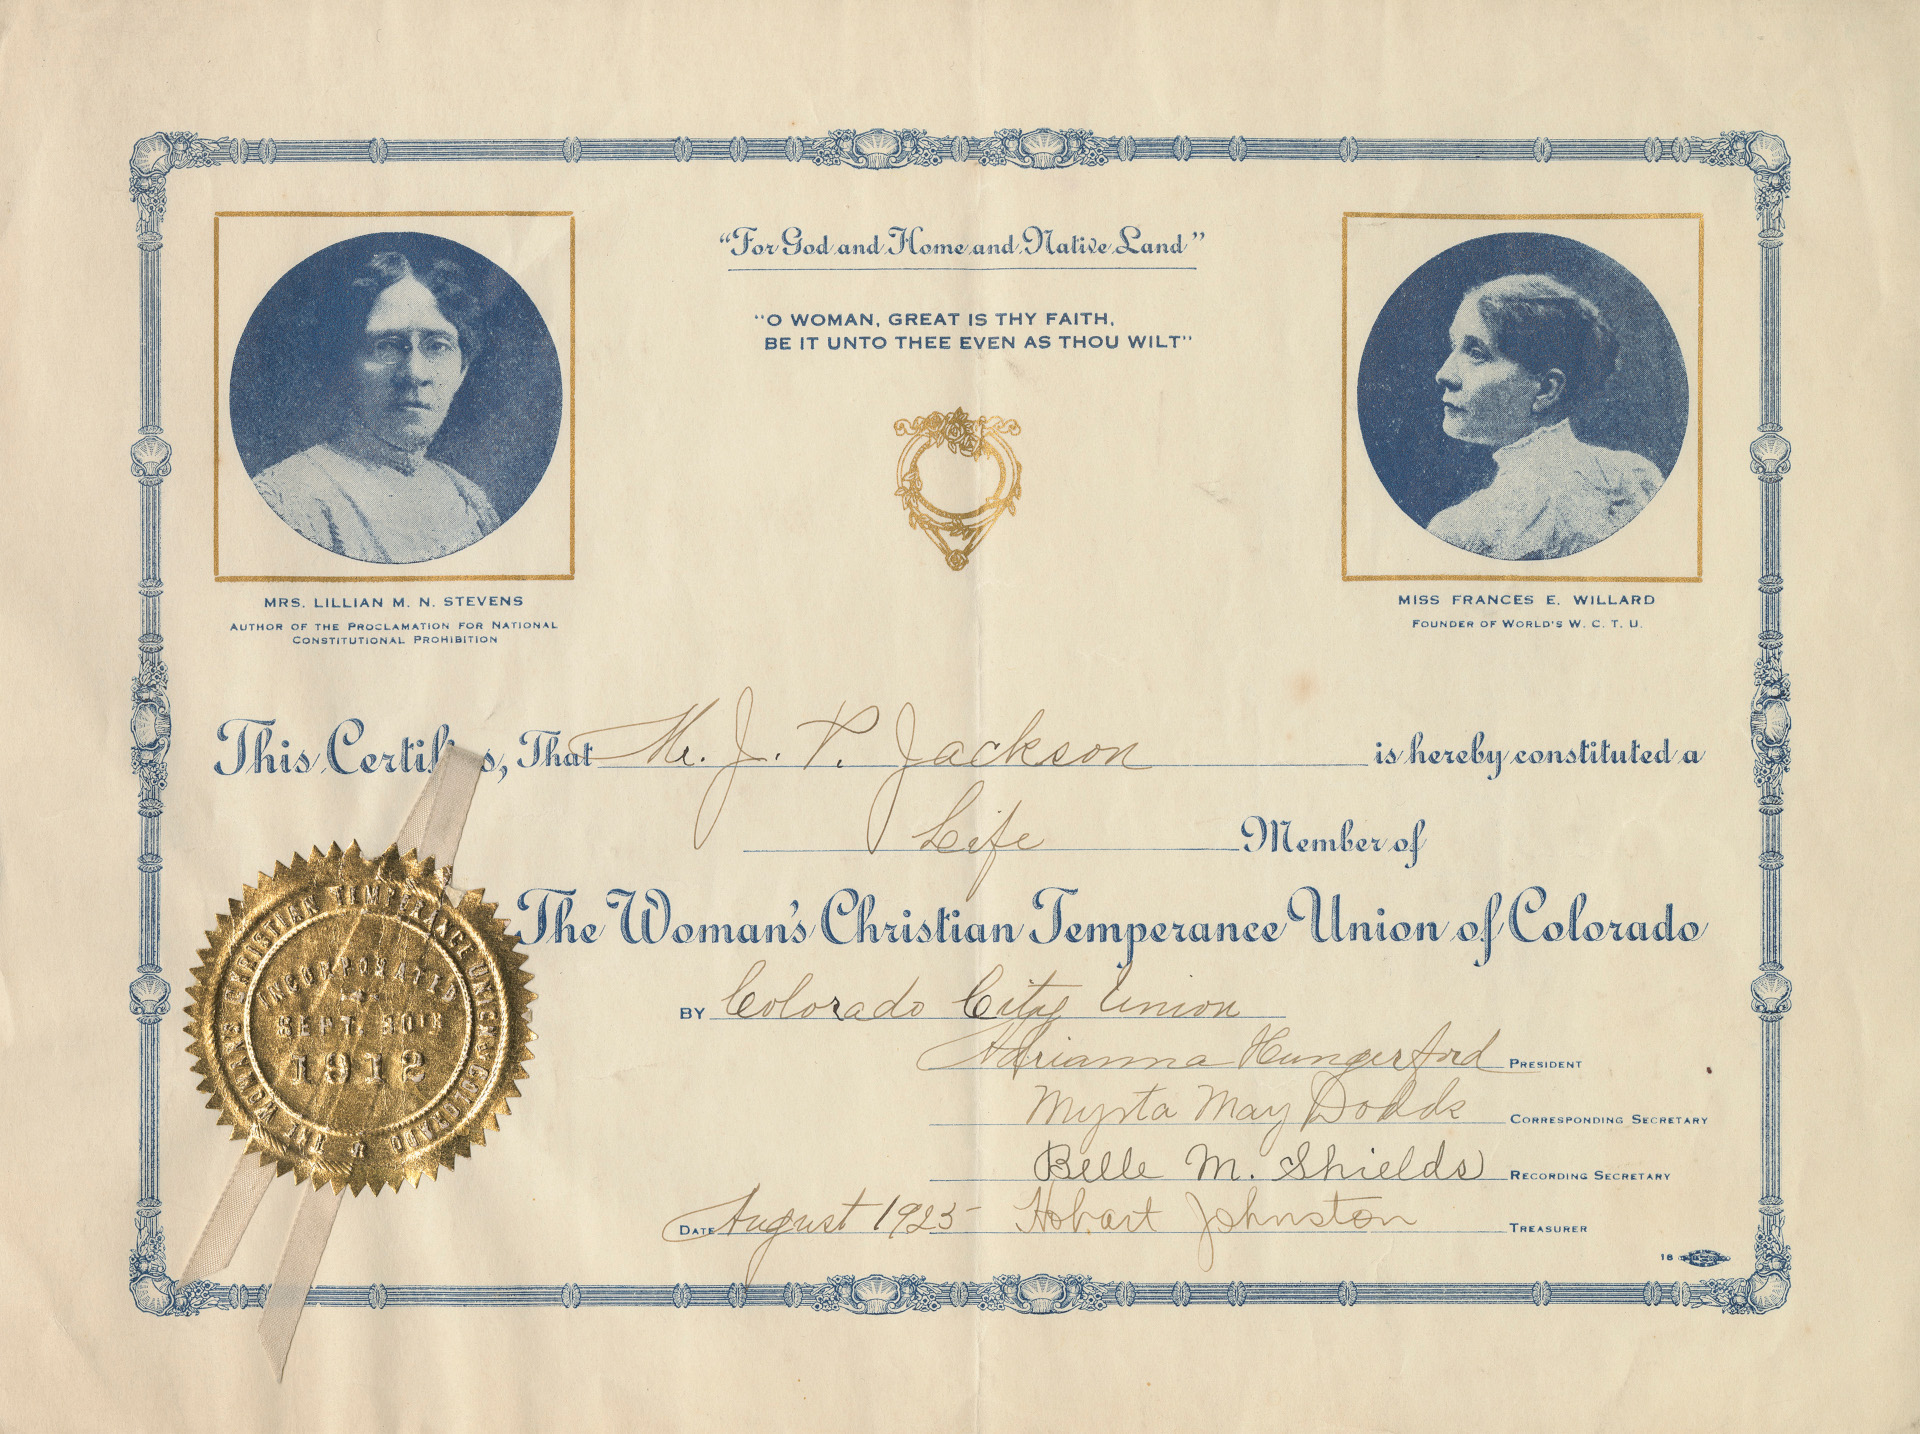 "For God and Home and Native Land"
"O WOMAN, GREAT IS THY FAITH,
BE IT UNTO THEE EVEN AS THOU WILT"
MRS. LILLIAN M. N. STEVENS
AUTHOR OF THE PROCLAMATION FOR NATIONAL
CONSTITUTIONAL PROHIBITION
MISS FRANCES E. WILLARD
FOUNDER OF WORLD'S W. C. T. U.
This Certifies, That Mr. J. P. Jackson is hereby constituted a
Life Member of
The Woman's Christian Temperance Union of Colorado
BY Colorado City Union
Adrianna Hungerford PRESIDENT
Myrta May Dodds CORRESPONDING SECRETARY
Belle M. Shields RECORDING SECRETARY
DATE August 1925 Hobart Johnston TREASURER
THE WOMAN'S CHRISTIAN TEMPERANCE UNION OF COLORADO
INCORPORATED
SEPT. 30TH
1912
18